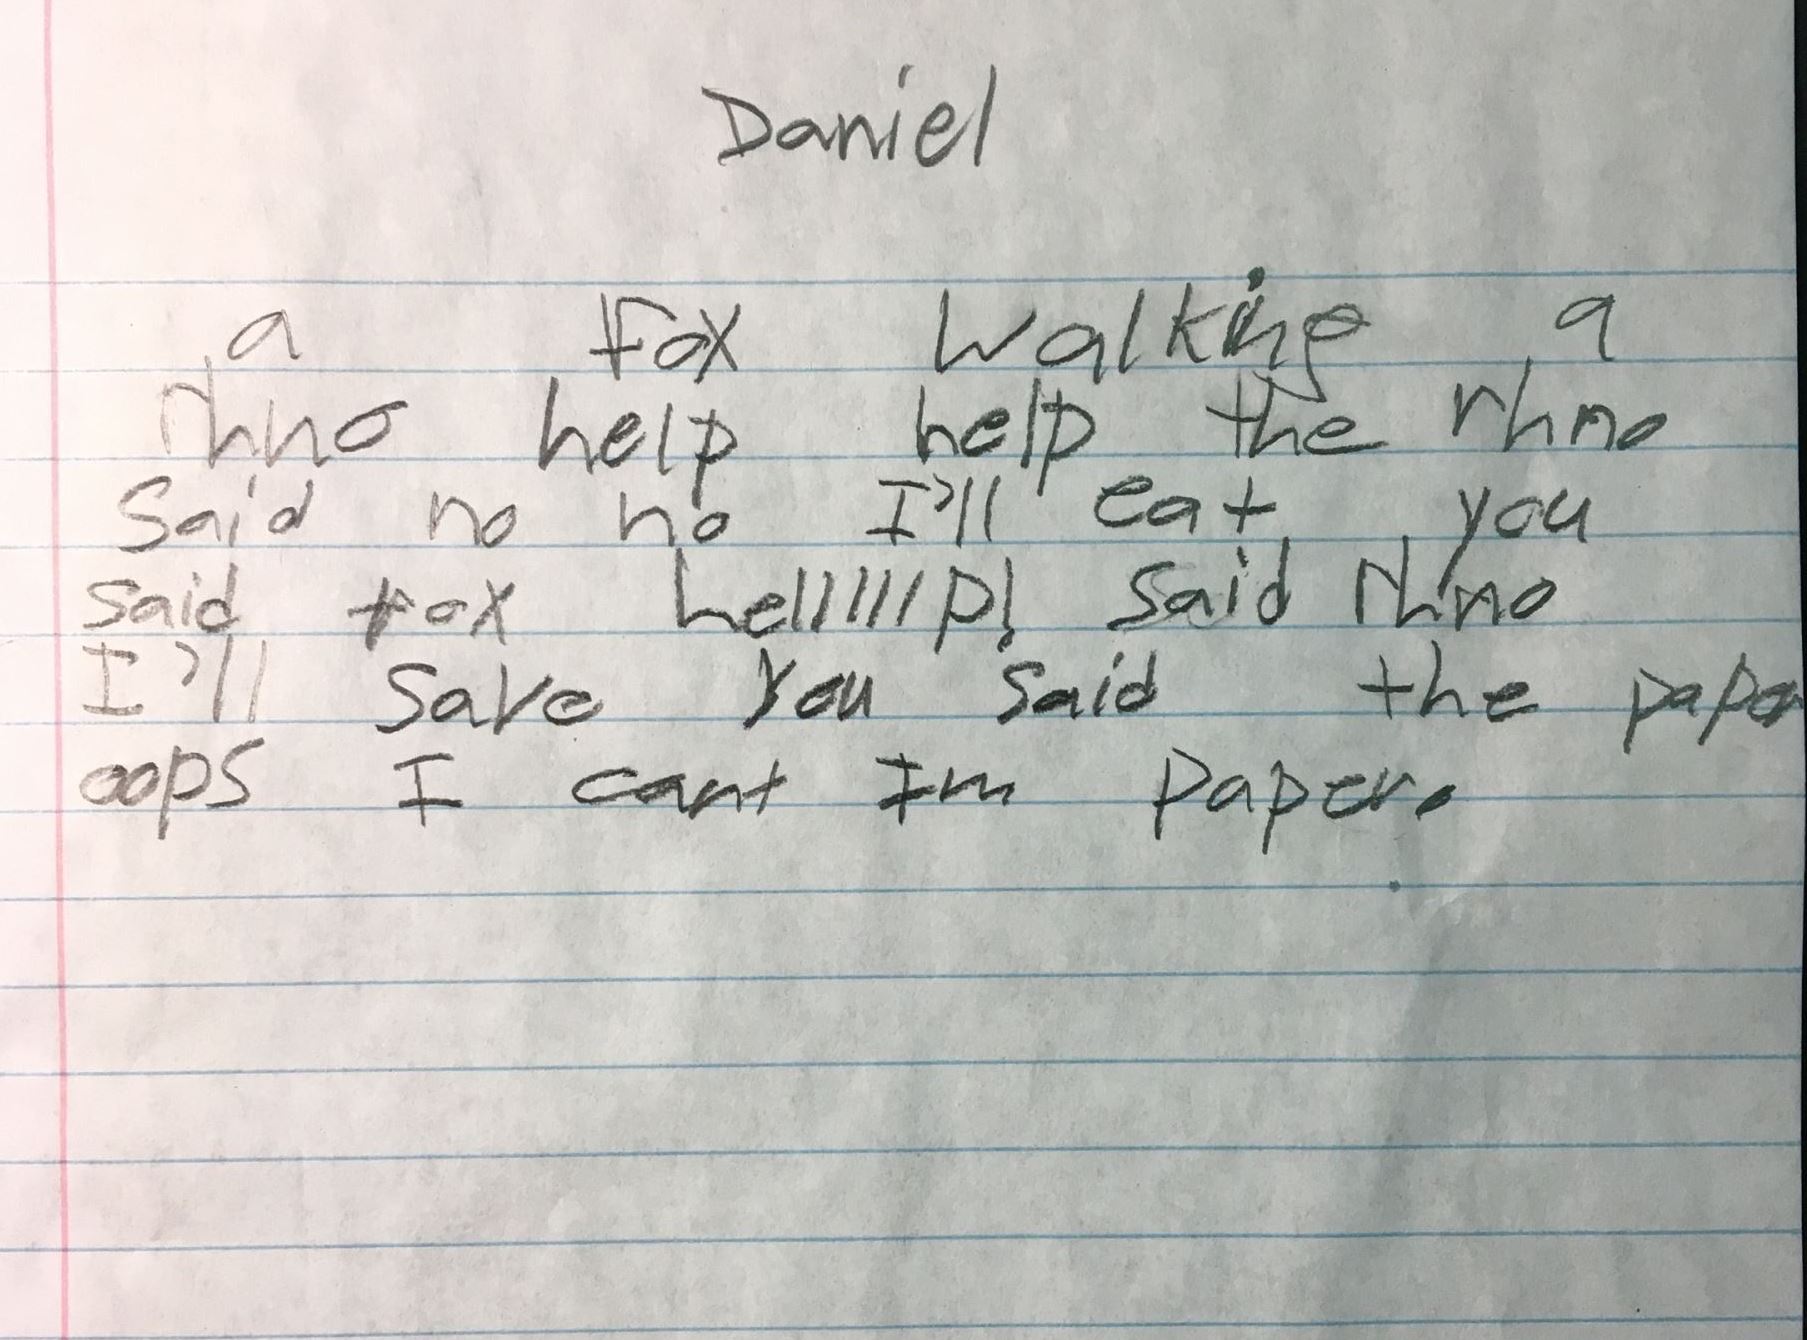 Daniel
a fox walking a
rhno help help the rhno
Said no no I'll eat you
said fox hellllllp! said rhno
I'll save you said the paper
oops I cant Im paper.